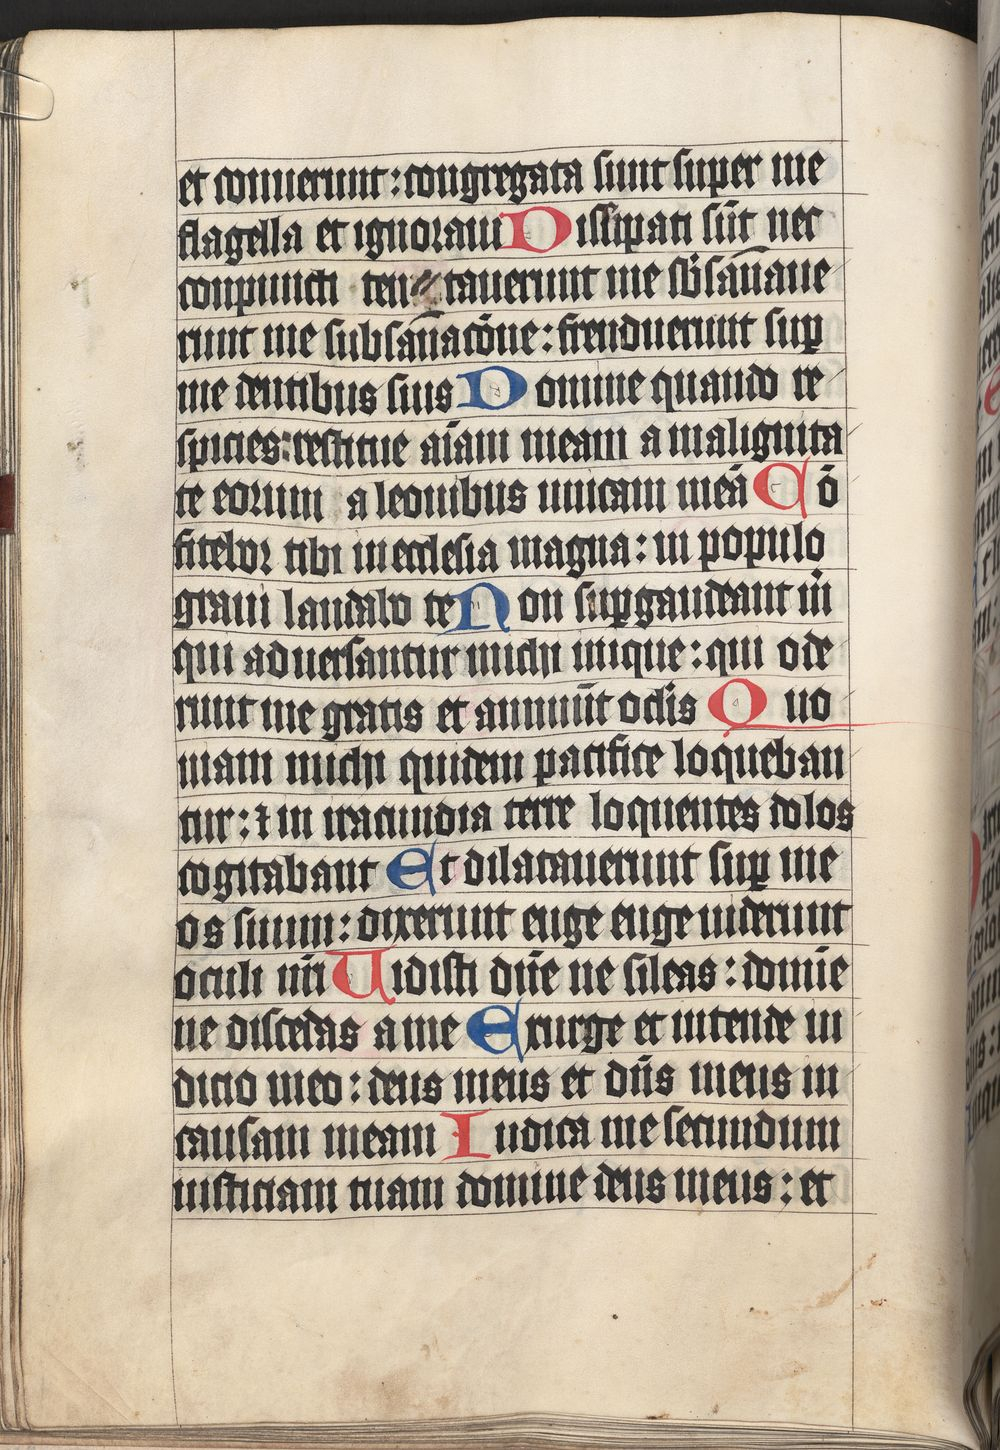 et convenerunt : congregata sunt super me
flagella et ignoraui Dissipati sūt nec
conpuncti temptauerunt me sb̄sānaue
runt me subsānacōne : frenduerunt sup̱
me dentibus suis Domine quando re
spicies : restitue aīam meam a malignita
te eorum a leonibus unicam meā Cō
fitebor tibi in ecclesia magna : in populo
graui laudabo te Non sup̱gaudeant m̄
qui aduersantur michi inique : qui ode
runt me gratis et annuūt oc̄lis Quo
niam michi quidem pacifice loqueban
tur : ⁊ in iracundia terre loquentes dolos
cogitabant Et dilatauerunt sup̱ me
os suum : dixerunt euge euge uiderunt
oculi nr̄i Uidisti dn̄e ne sileas : domīe
ne discedas a me Exurge et intende iu
dicio meo : deus meus et dn̄s meus in
causam meam Iudica me secundum
iusticiam tuam domine deus meus : et